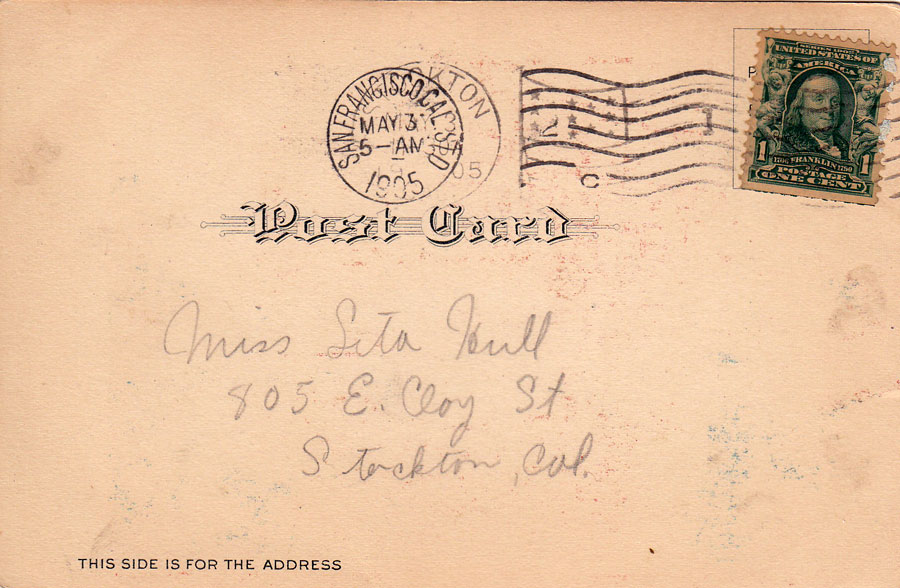 SAN FRANCISCO, CAL. STA. D
MAY 31
5-AM
1905
KTON
05
2
1
C
SERIES 1902
UNITED STATES OF
AMERICA
1706 FRANKLIN 1790
1 POSTAGE 1
ONE CENT
P
Post Card
Miss Leta Hull
805 E. Clay St
Stockton, Cal.
THIS SIDE IS FOR THE ADDRESS